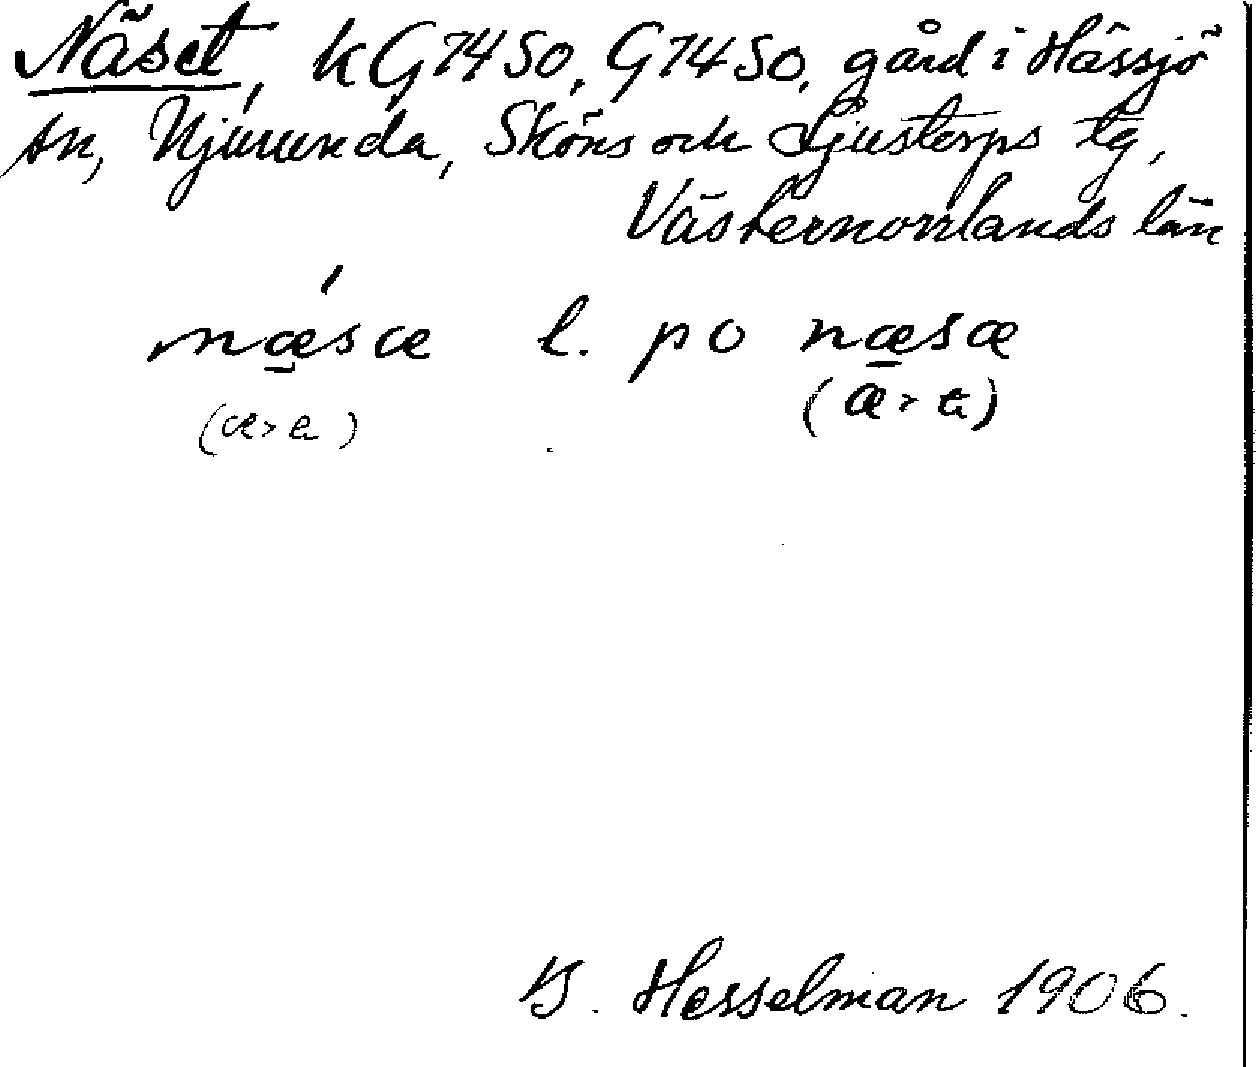 Näset, k G7450, G7450, gård i Hässjö
sn, Njurunda, Sköns och Ljustorps tg,
Västernorrlands län
næ̱´sæ l. po næ̱sæ
(æ>a) (æ>a)
B. Hesselman 1906.